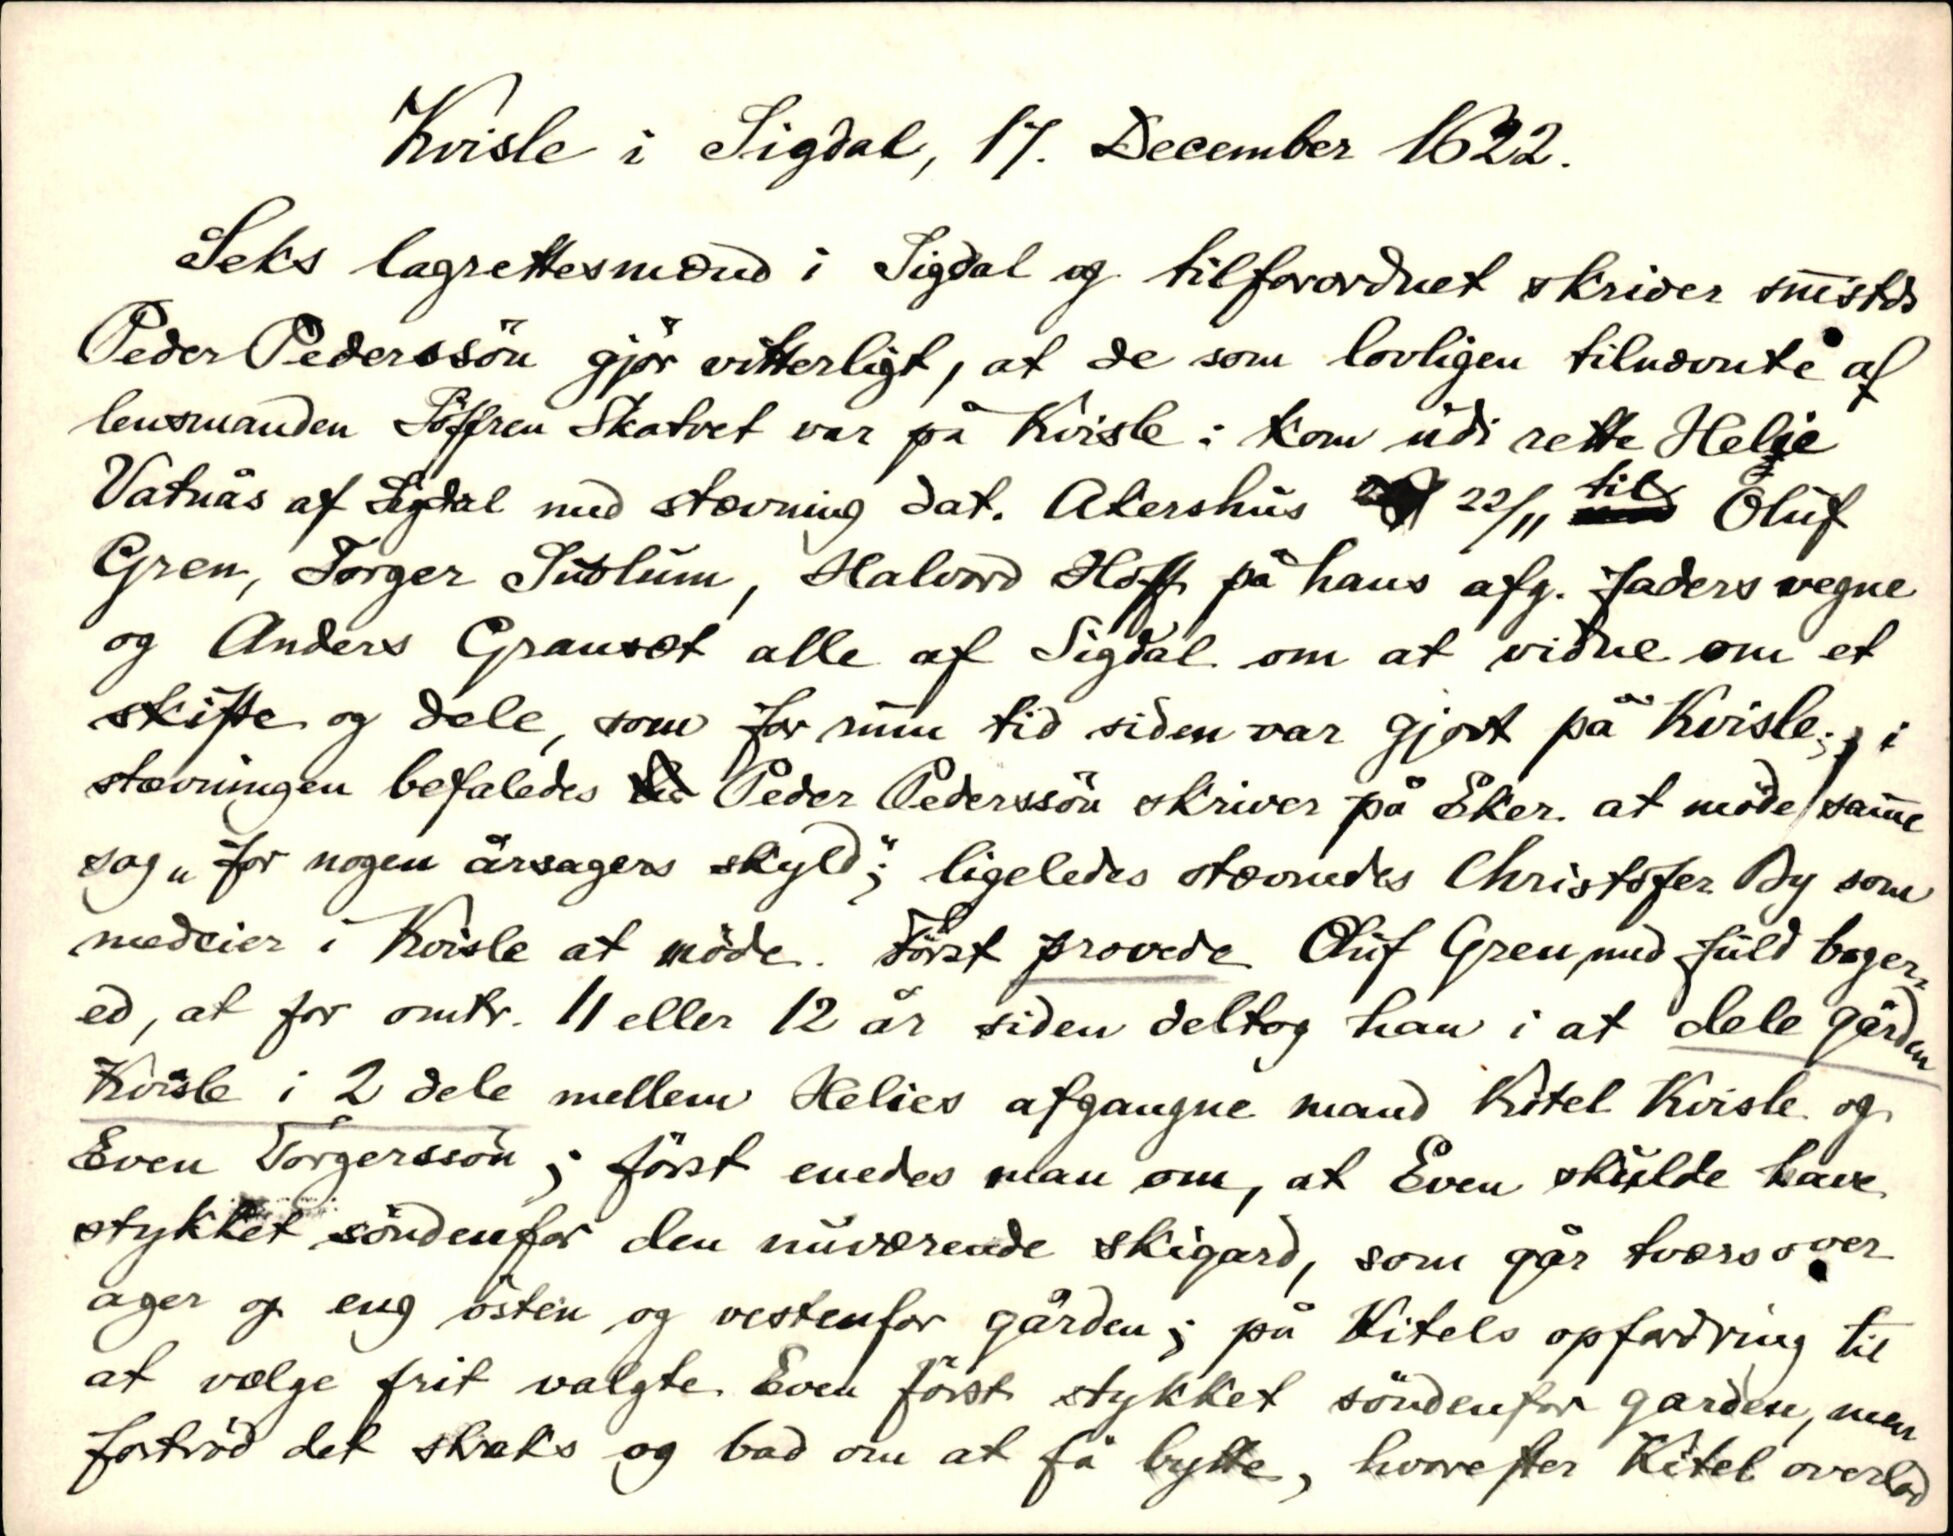 Kvisle i Sigdal, 17. December 1622.
Seks lagrettesmænd i Sigdal og tilforordnet skriver sm̅stds
Peder Pederssön gjör vitterligt, at de som lovligen tilnævnte af
lensmanden Söffren Skatvet var på Kvisle: kom udi rette Helje
Vatnås af Sigdal med stævning dat. Akershus 22/11 til Oluf
Gren, Torger Suslum, Halvord Hoff på hans afg. faders vegne
og Anders Granset alle af Sigdal om at vidne om et
skifte og dele, som for rum tid siden var gjort på Kvisle; i
stævningen befaledes Peder Pederssön skriver på Eker at möde i sam̅e
sag „for nogen årsagers skyld"; ligeledes stævnedes Christofer By som
medeier i Kvisle at möde. Först provede Oluf Gren, med fuld boger-
ed, at for omtr. 11 eller 12 år siden deltog han i at dele gården
Kvisle i 2 dele mellem Helies afgangne mand Kitel Kvisle og
Even Torgerssön; först enedes man om, at Even skulde have
stykket söndenfor den nuværende skigard, som går tværsover
ager og eng östen og vestenfor gården; på Kitels opfordring til
at vælge frit valgte Even först stykket söndenfor garden, men
fortröd det straks og bad om at få bytte, hvorefter Kitel overlod